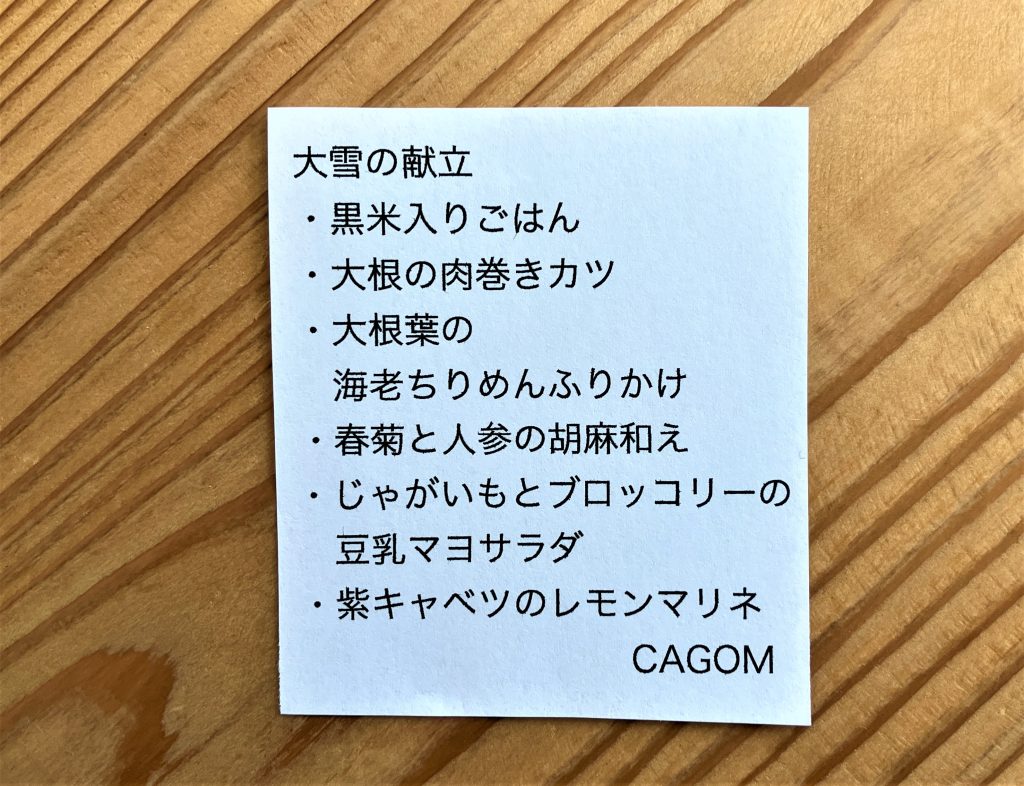 大雪の献立
・黒米入りごはん
・大根の肉巻きカツ
・大根葉の
海老ちりめんふりかけ
・春菊と人参の胡麻和え
・じゃがいもとブロッコリーの
豆乳マヨサラダ
・紫キャベツのレモンマリネ
CAGOM